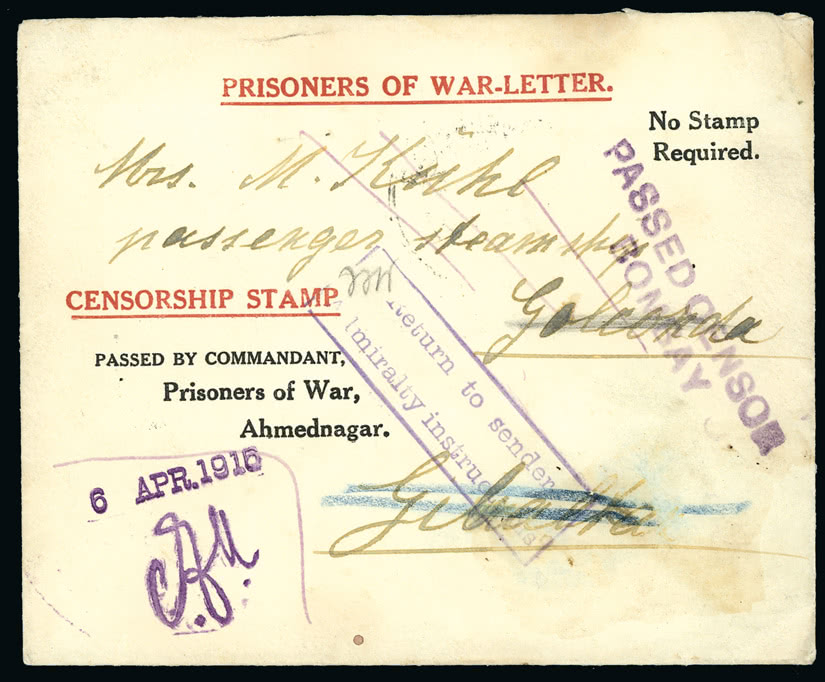 PRISONERS OF WAR-LETTER.
No Stamp
Required.
Mrs. M. Kühl
passenger steamship
Golconda
PASSED CENSOR
BOMBAY
CENSORSHIP STAMP
PASSED BY COMMANDANT,
Prisoners of War,
Ahmednagar.
Return to sender
lmiralty instruc
6 APR. 1916
Gibraltar